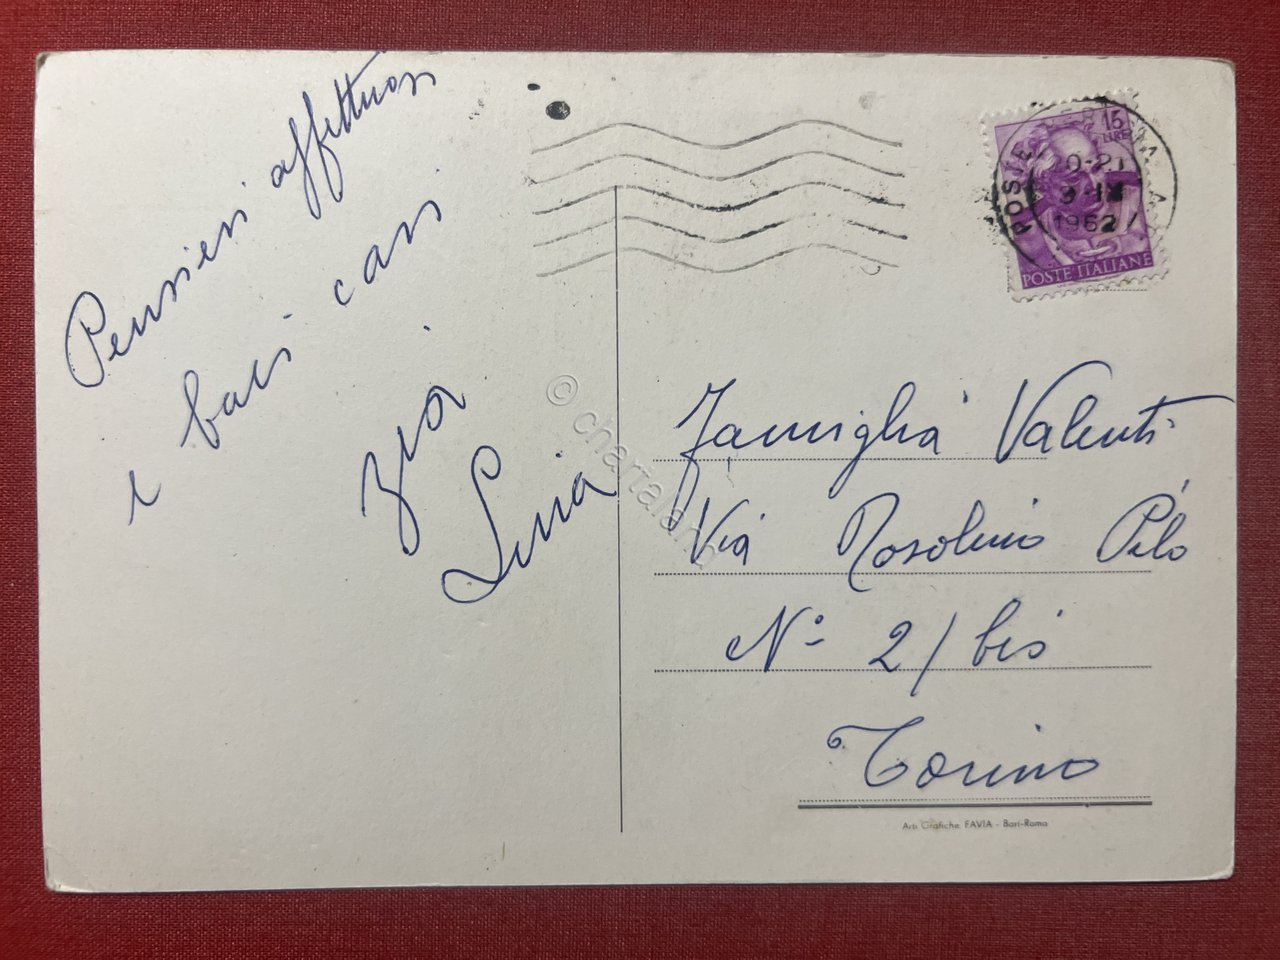 Pensieri affettuosi
e baci cari
zia
Livia
15
LIRE
POSTE
1962
POSTE ITALIANE
© chartaland
Famiglia Valenti
Via Rosolino Pilo
N° 2/bis
Torino
Arti Grafiche FAVIA - Bari-Roma